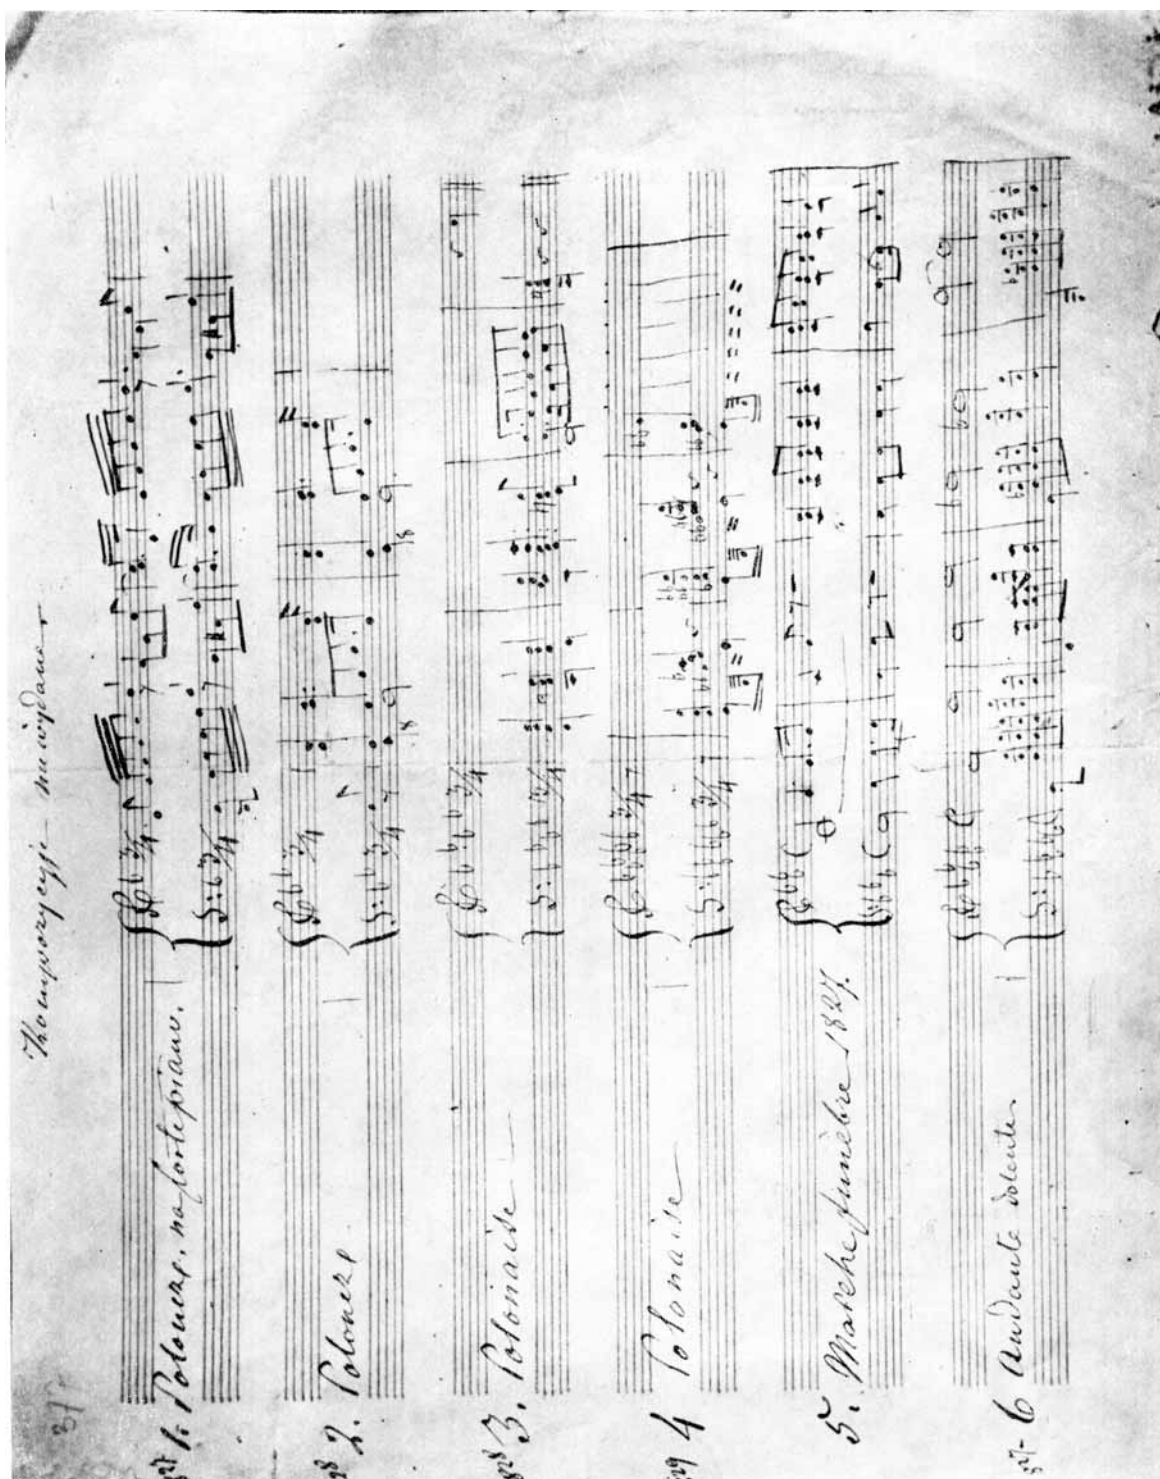 Kompozycyje niewydane
37
827 1. Poloneze. na fortepiano.
828 2. Poloneze
828 3. Polonaise
829 4 Polonaise
5. Marche funèbre 1827.
827- 6 Andante dolente.